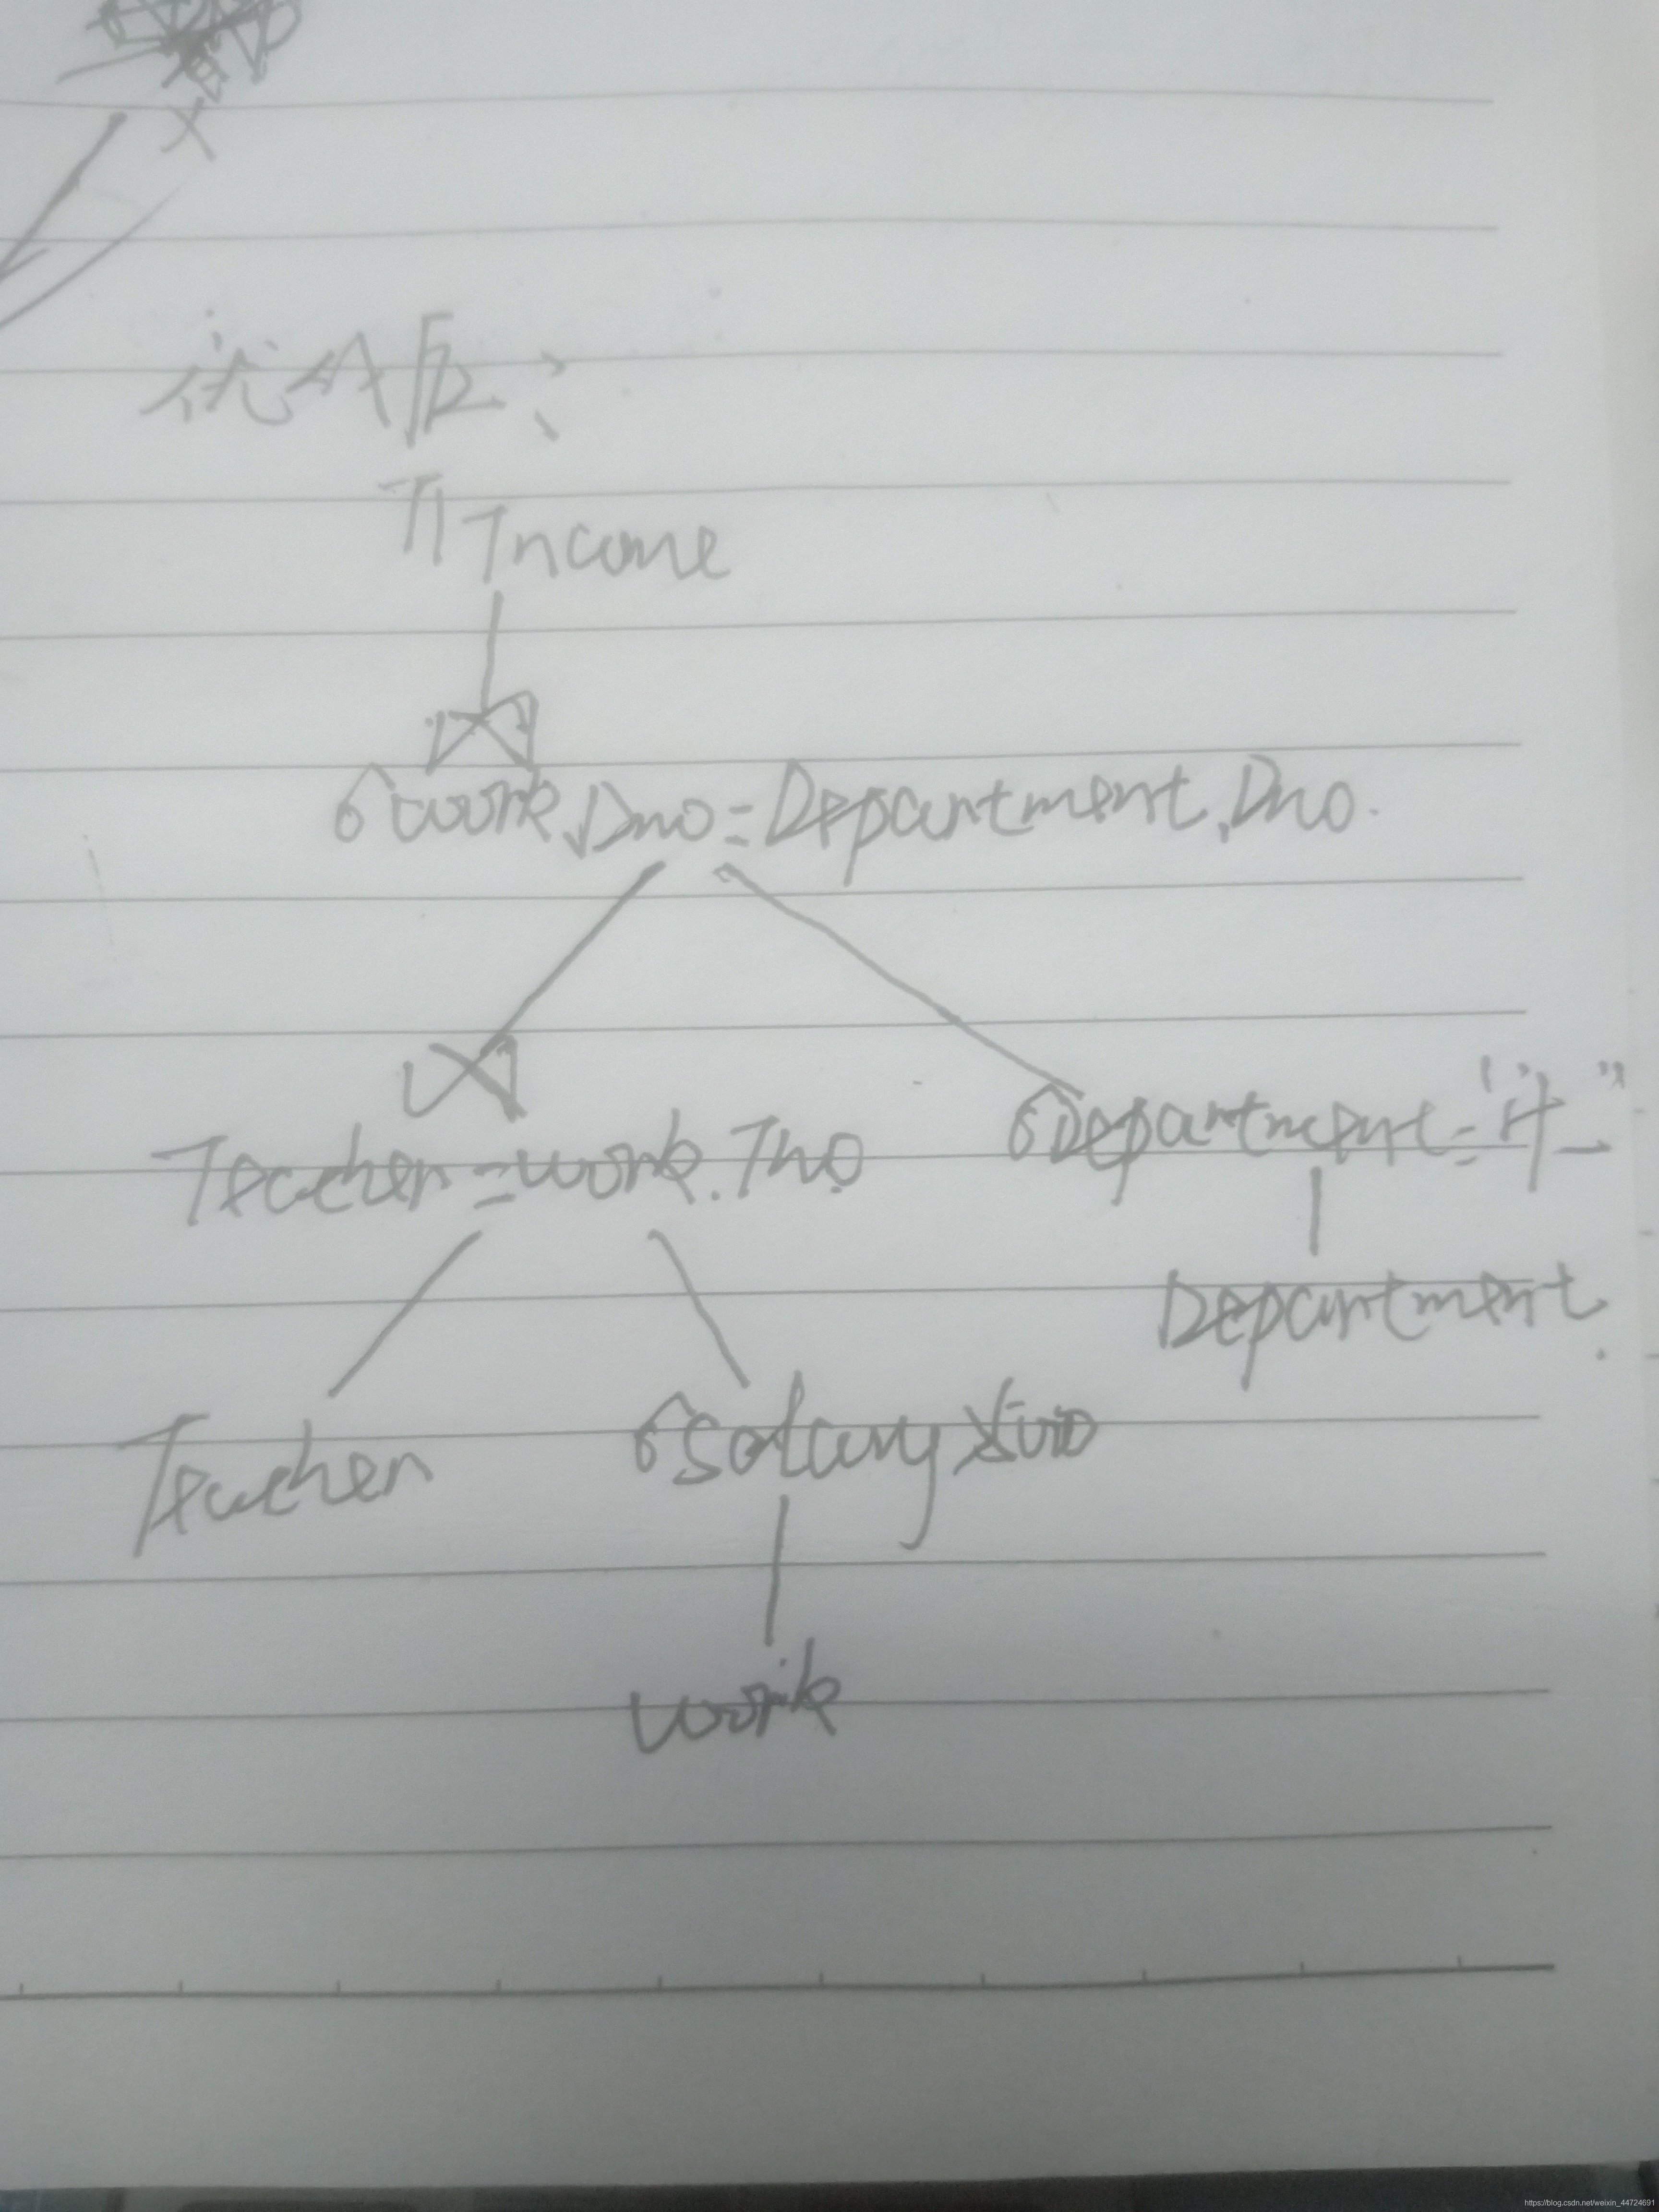 优化后:
π Income
⋈
σ work.Dno=Department.Dno.
⋈
Teacher=work.Tno
σ Department="计
Department
Teacher
σ Salary
work
https://blog.csdn.net/weixin_44724691